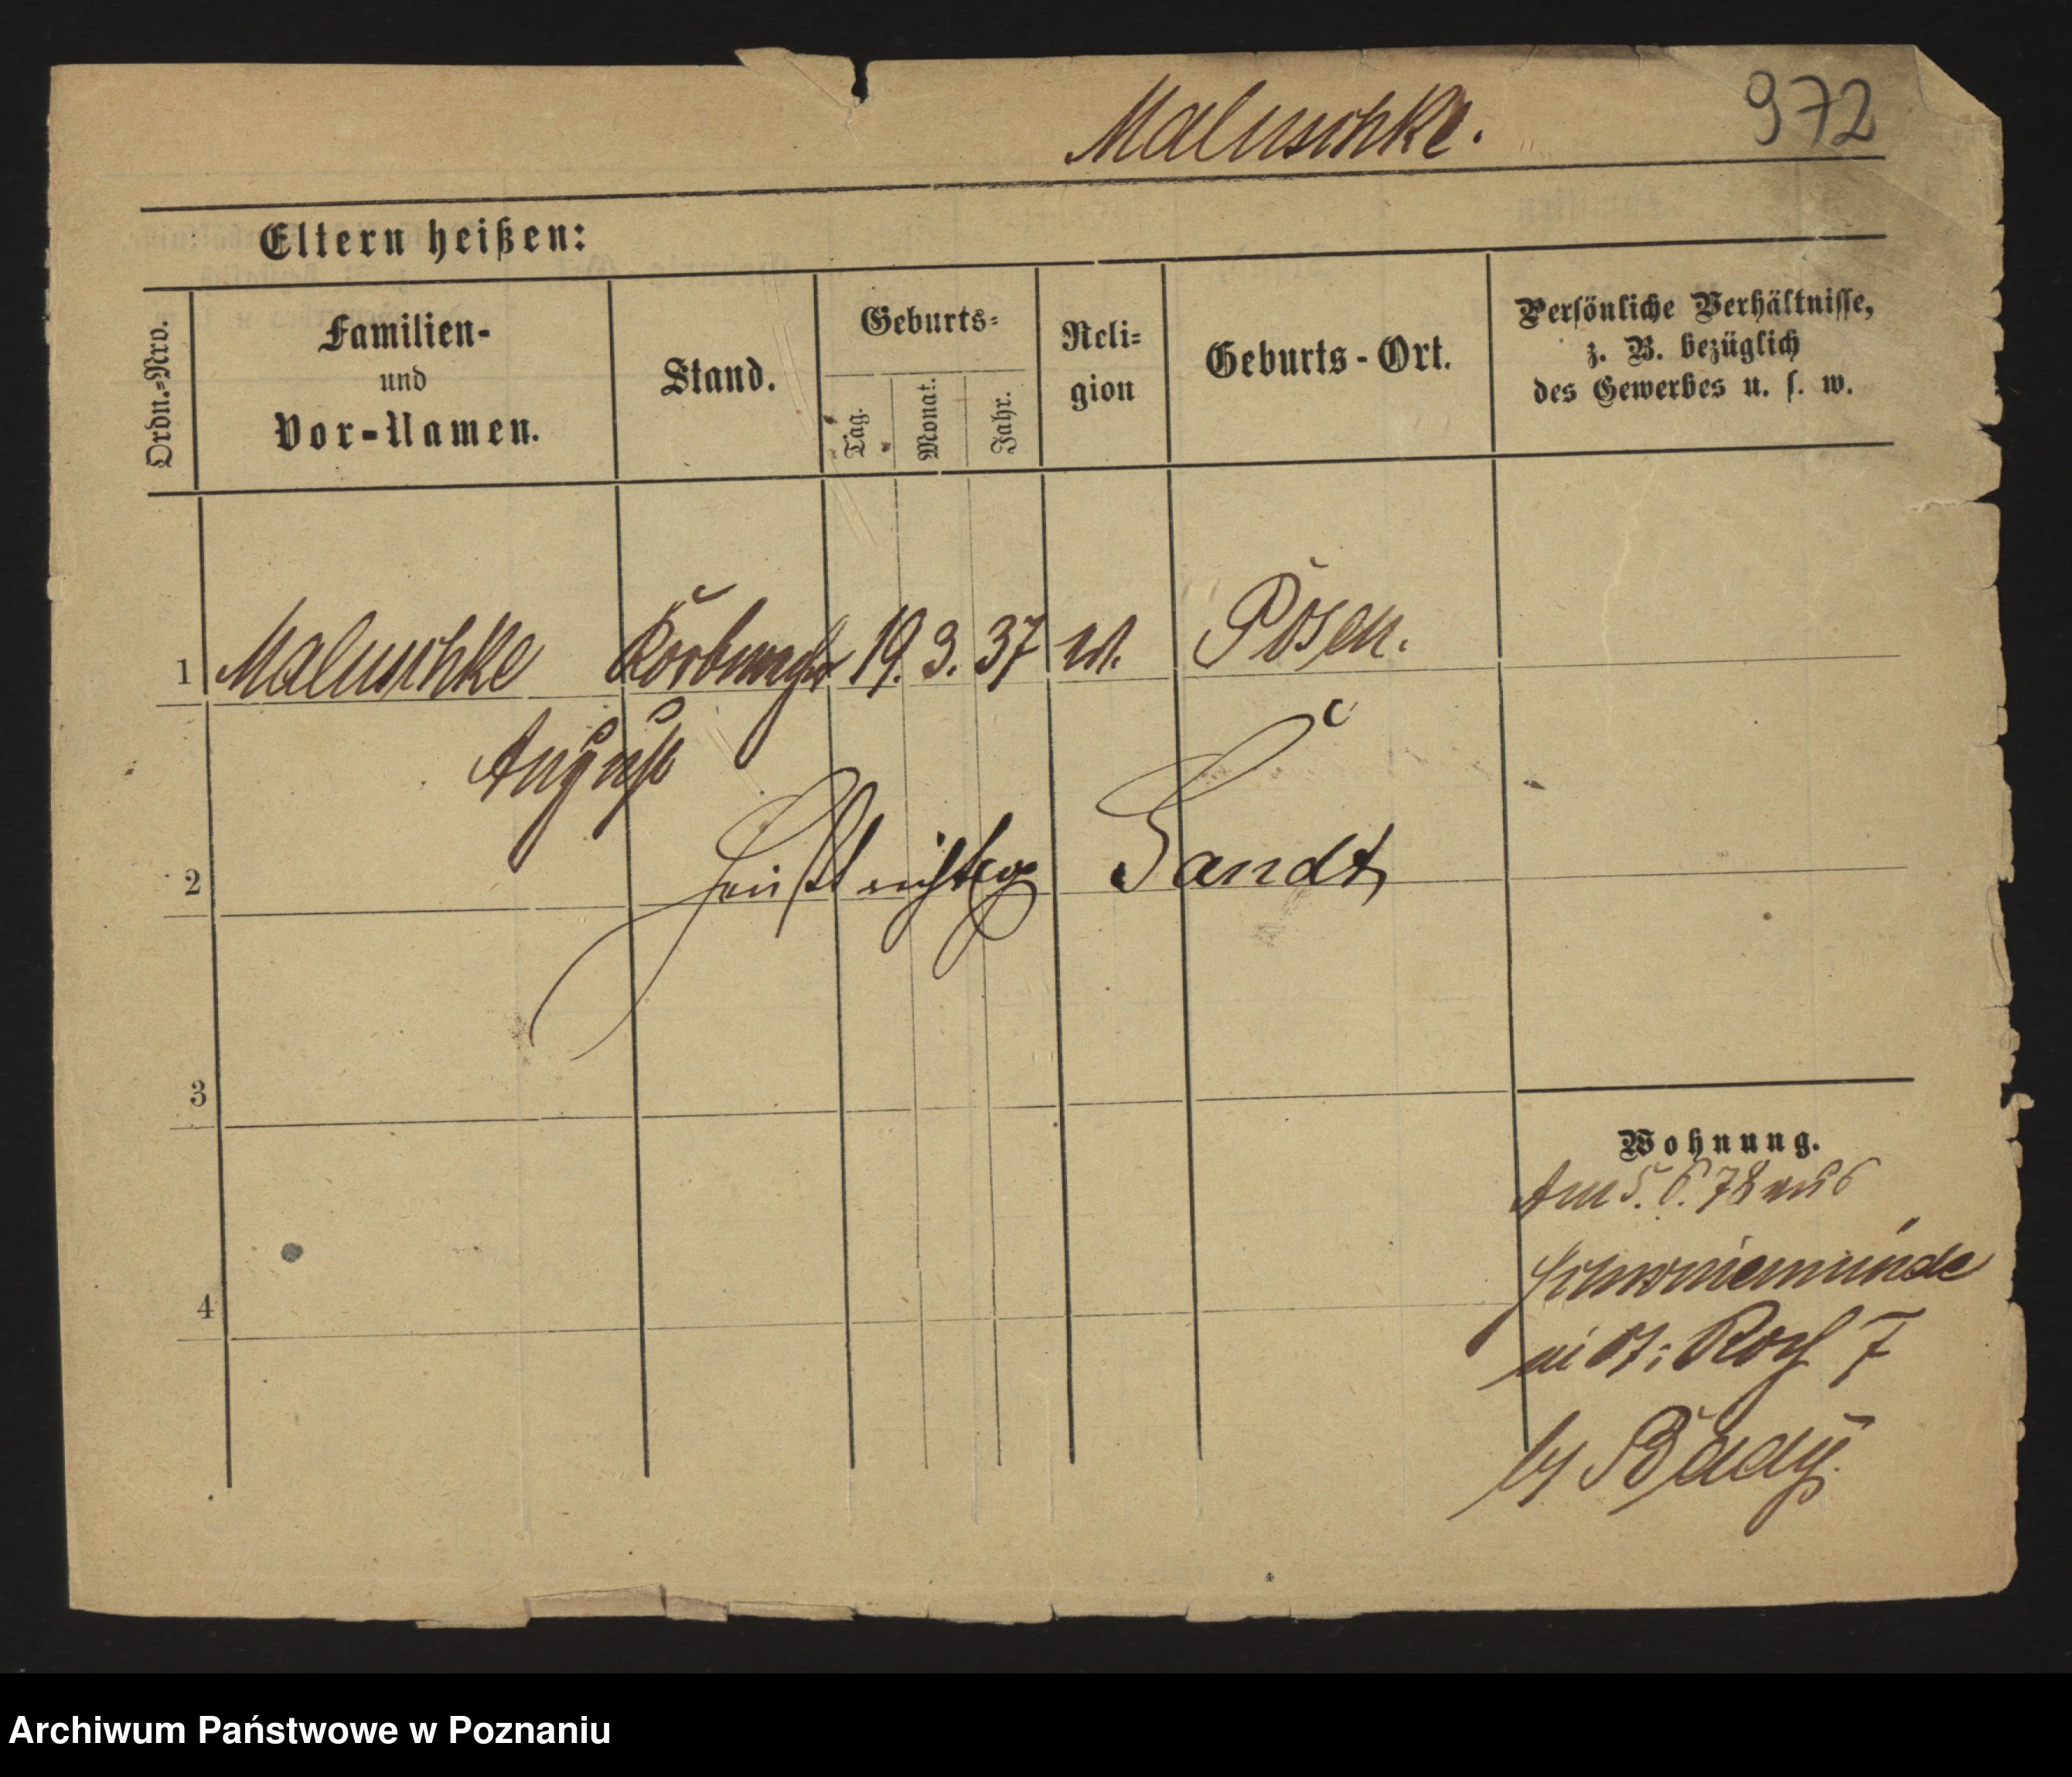 Maluschke. 972
Eltern heißen:
Ordn.-Nro.
Familien-
und
Vor-Namen.
Stand.
Geburts-
Tag.
Monat.
Jahr.
Reli-
gion
Geburts-Ort.
Persönliche Verhältnisse,
z. B. bezüglich
des Gewerbes u. s. w.
1 Maluschke Korbmacher 19. 3. 37 Posen.
August
2 Sandt
3
Wohnung.
Am 5. 6. 78 aus
4
Schwoniemünde
Roch 7
by